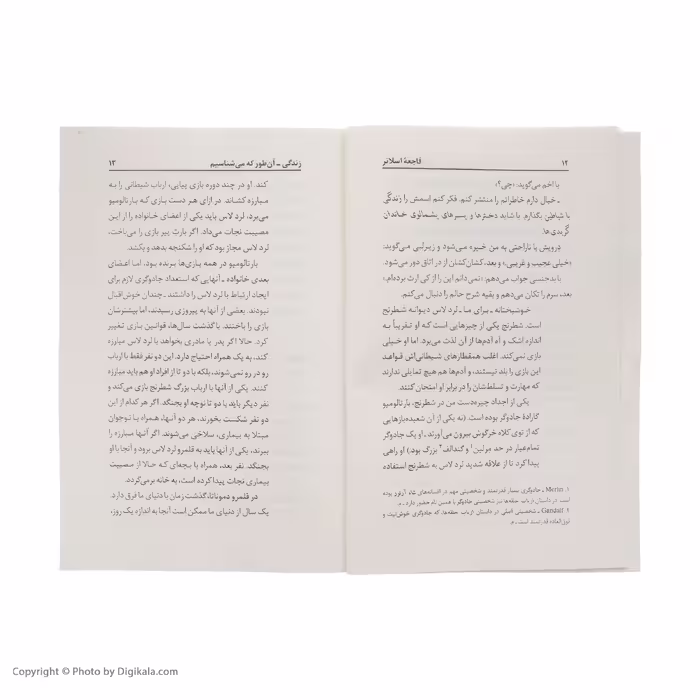 ۱۲ فاجعهٔ اسلاتر
با اخم می‌گوید، «چی؟»
ـ خیال دارم خاطراتم را منتشر کنم. فکر کنم اسمش را زندگی
با شیاطین بگذارم. یا شاید دخترها و پسرهای پشمالوی خاندان
گریدی‌ها.
درویش با ناراحتی به من خیره می‌شود و زیرلبی می‌گوید،
«خیلی عجیب و غریبی.» و بعد، کشان‌کشان از در اتاق دور می‌شود.
با بدجنسی جواب می‌دهم: «نمی‌دانم این را از کی ارث برده‌ام.»
بعد، سرم را تکان می‌دهم و بقیه شرح حالم را دنبال می‌کنم.
خوشبختانه ـ برای ما ـ لرد لاس دیوانه شطرنج
است. شطرنج یکی از چیزهایی است که او تقریباً به
اندازه اشک و آه آدم‌ها از آن لذت می‌برد. اما او خیلی
بازی نمی‌کند. اغلب همقطارهای شیطانی‌اش قواعد
این بازی را بلد نیستند، و آدم‌ها هم هیچ تمایلی ندارند
که مهارت و تسلطشان را در برابر او امتحان کنند.
یکی از اجداد چیره‌دست من در شطرنج، بارتالومیو
گارادهٔ جادوگر بوده است. (نه یکی از آن شعبده‌بازهایی
که از توی کلاه خرگوش بیرون می‌آورند ـ او یک جادوگر
تمام‌عیار در حد مرلین۱ و گندالف۲ بزرگ بود.) او راهی
پیدا کرد تا از علاقه شدید لرد لاس به شطرنج استفاده
۱. Merlin ـ جادوگری بسیار قدرتمند و شخصیتی مهم در افسانه‌های شاه آرتور بوده
است. در داستان ارباب حلقه‌ها نیز شخصیتی جادوگر با همین نام حضور دارد ـ م.
۲. Gandalf ـ شخصیتی اصلی در داستان ارباب حلقه‌ها، که جادوگری خوش‌نیت و
فوق‌العاده قدرتمند است ـ م.
زندگی ـ آن‌طور که می‌شناسیم ۱۳
کند. او در چند دوره بازی پیاپی، ارباب شیطانی را به
مبارزه کشاند. در ازای هر دست بازی که بارتالومیو
می‌برد، لرد لاس باید یکی از اعضای خانواده را از این
مصیبت نجات می‌داد. اگر بارتِ پیر بازی را می‌باخت،
لرد لاس مجاز بود که او را شکنجه بدهد و بکشد.
بارتالومیو در همه بازی‌ها برنده بود. اما اعضای
بعدی خانواده ـ آنهایی که استعداد جادوگری لازم برای
ایجاد ارتباط با لرد لاس را داشتند ـ چندان خوش‌اقبال
نبودند. بعضی از آنها به پیروزی رسیدند، اما بیشترشان
بازی را باختند. با گذشت سال‌ها، قوانین بازی تغییر
کرد. حالا اگر پدر یا مادری بخواهد با لرد لاس مبارزه
کند، به یک همراه احتیاج دارد. این دو نفر فقط با ارباب
رو در رو نمی‌شوند، بلکه با دو تا از افراد او هم باید مبارزه
کنند. یکی از آنها با ارباب بزرگ شطرنج بازی می‌کند و
نفر دیگر باید با دو تا نوچه او بجنگد. اگر هر کدام از این
دو نفر شکست بخورند، هر دو آنها، همراه با نوجوان
مبتلا به بیماری، سلاخی می‌شوند. اگر آنها مبارزه را
ببرند، یکی از آنها باید به قلمرو لرد لاس برود و آنجا با او
بجنگد. نفر بعد، همراه با بچه‌ای که حالا از مصیبت
بیماری نجات پیدا کرده است، به خانه برمی‌گردد.
در قلمرو دموناتا، گذشت زمان با دنیای ما فرق دارد.
یک سال از دنیای ما ممکن است آنجا به اندازه یک روز،
Copyright © Photo by Digikala.com